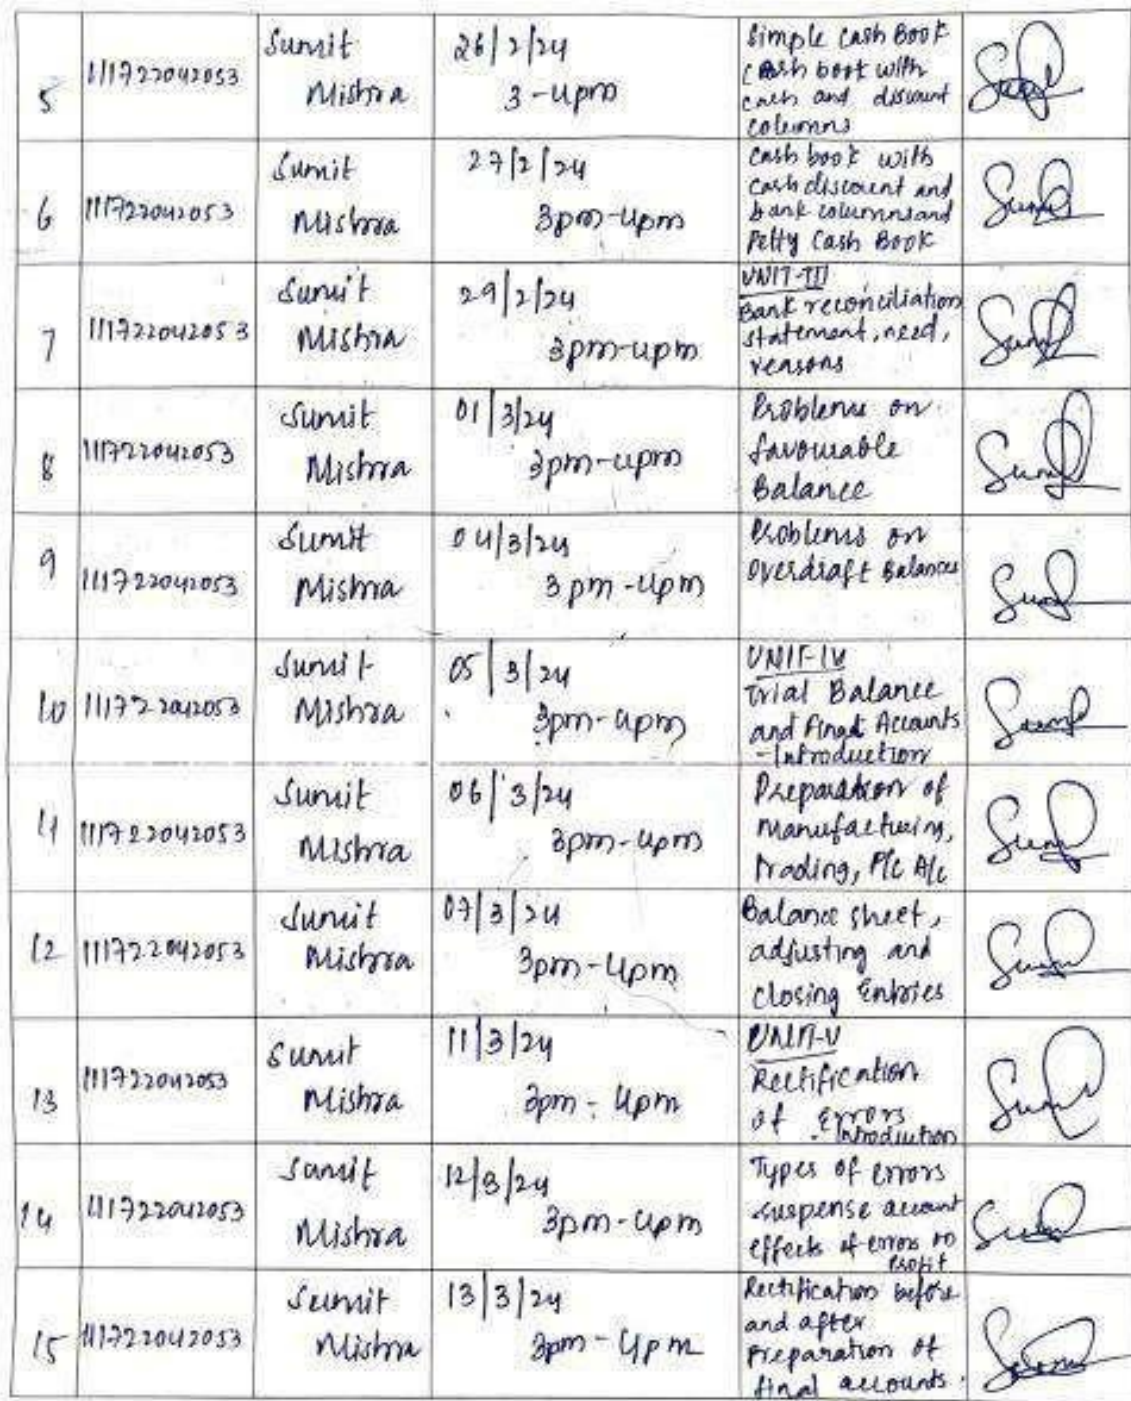 5 111722042053 Sumit Mishra 26/2/24 3-4pm Simple cash Book
cash book with
cash and discount
columns
6 111722042053 Sumit Mishra 27/2/24 3pm-4pm Cash book with
cash discount and
bank columns and
Petty Cash Book
7 111722042053 Sumit Mishra 29/2/24 3pm-4pm UNIT-III
Bank reconciliation
statement, need,
reasons
8 111722042053 Sumit Mishra 01/3/24 3pm-4pm Problems on
favourable
Balance
9 111722042053 Sumit Mishra 04/3/24 3pm-4pm Problems on
Overdraft Balances
10 111722042053 Sumit Mishra 05/3/24 3pm-4pm UNIT-IV
Trial Balance
and Final Accounts
-Introduction
11 111722042053 Sumit Mishra 06/3/24 3pm-4pm Preparation of
Manufacturing,
Trading, P/L A/c
12 111722042053 Sumit Mishra 07/3/24 3pm-4pm Balance sheet,
adjusting and
closing Entries
13 111722042053 Sumit Mishra 11/3/24 3pm-4pm UNIT-V
Rectification
of Errors
-Introduction
14 111722042053 Sumit Mishra 12/3/24 3pm-4pm Types of errors
suspense account
effects of errors on
Profit
15 111722042053 Sumit Mishra 13/3/24 3pm-4pm Rectification before
and after
preparation of
final accounts.